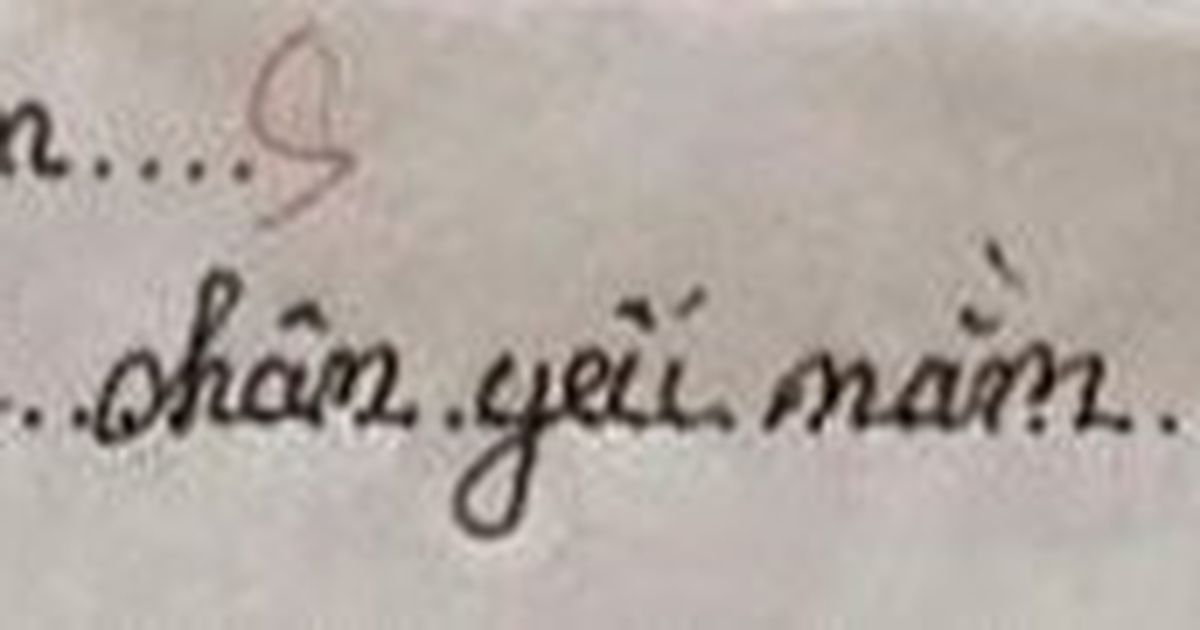 n....
...chân.yếu mằm.